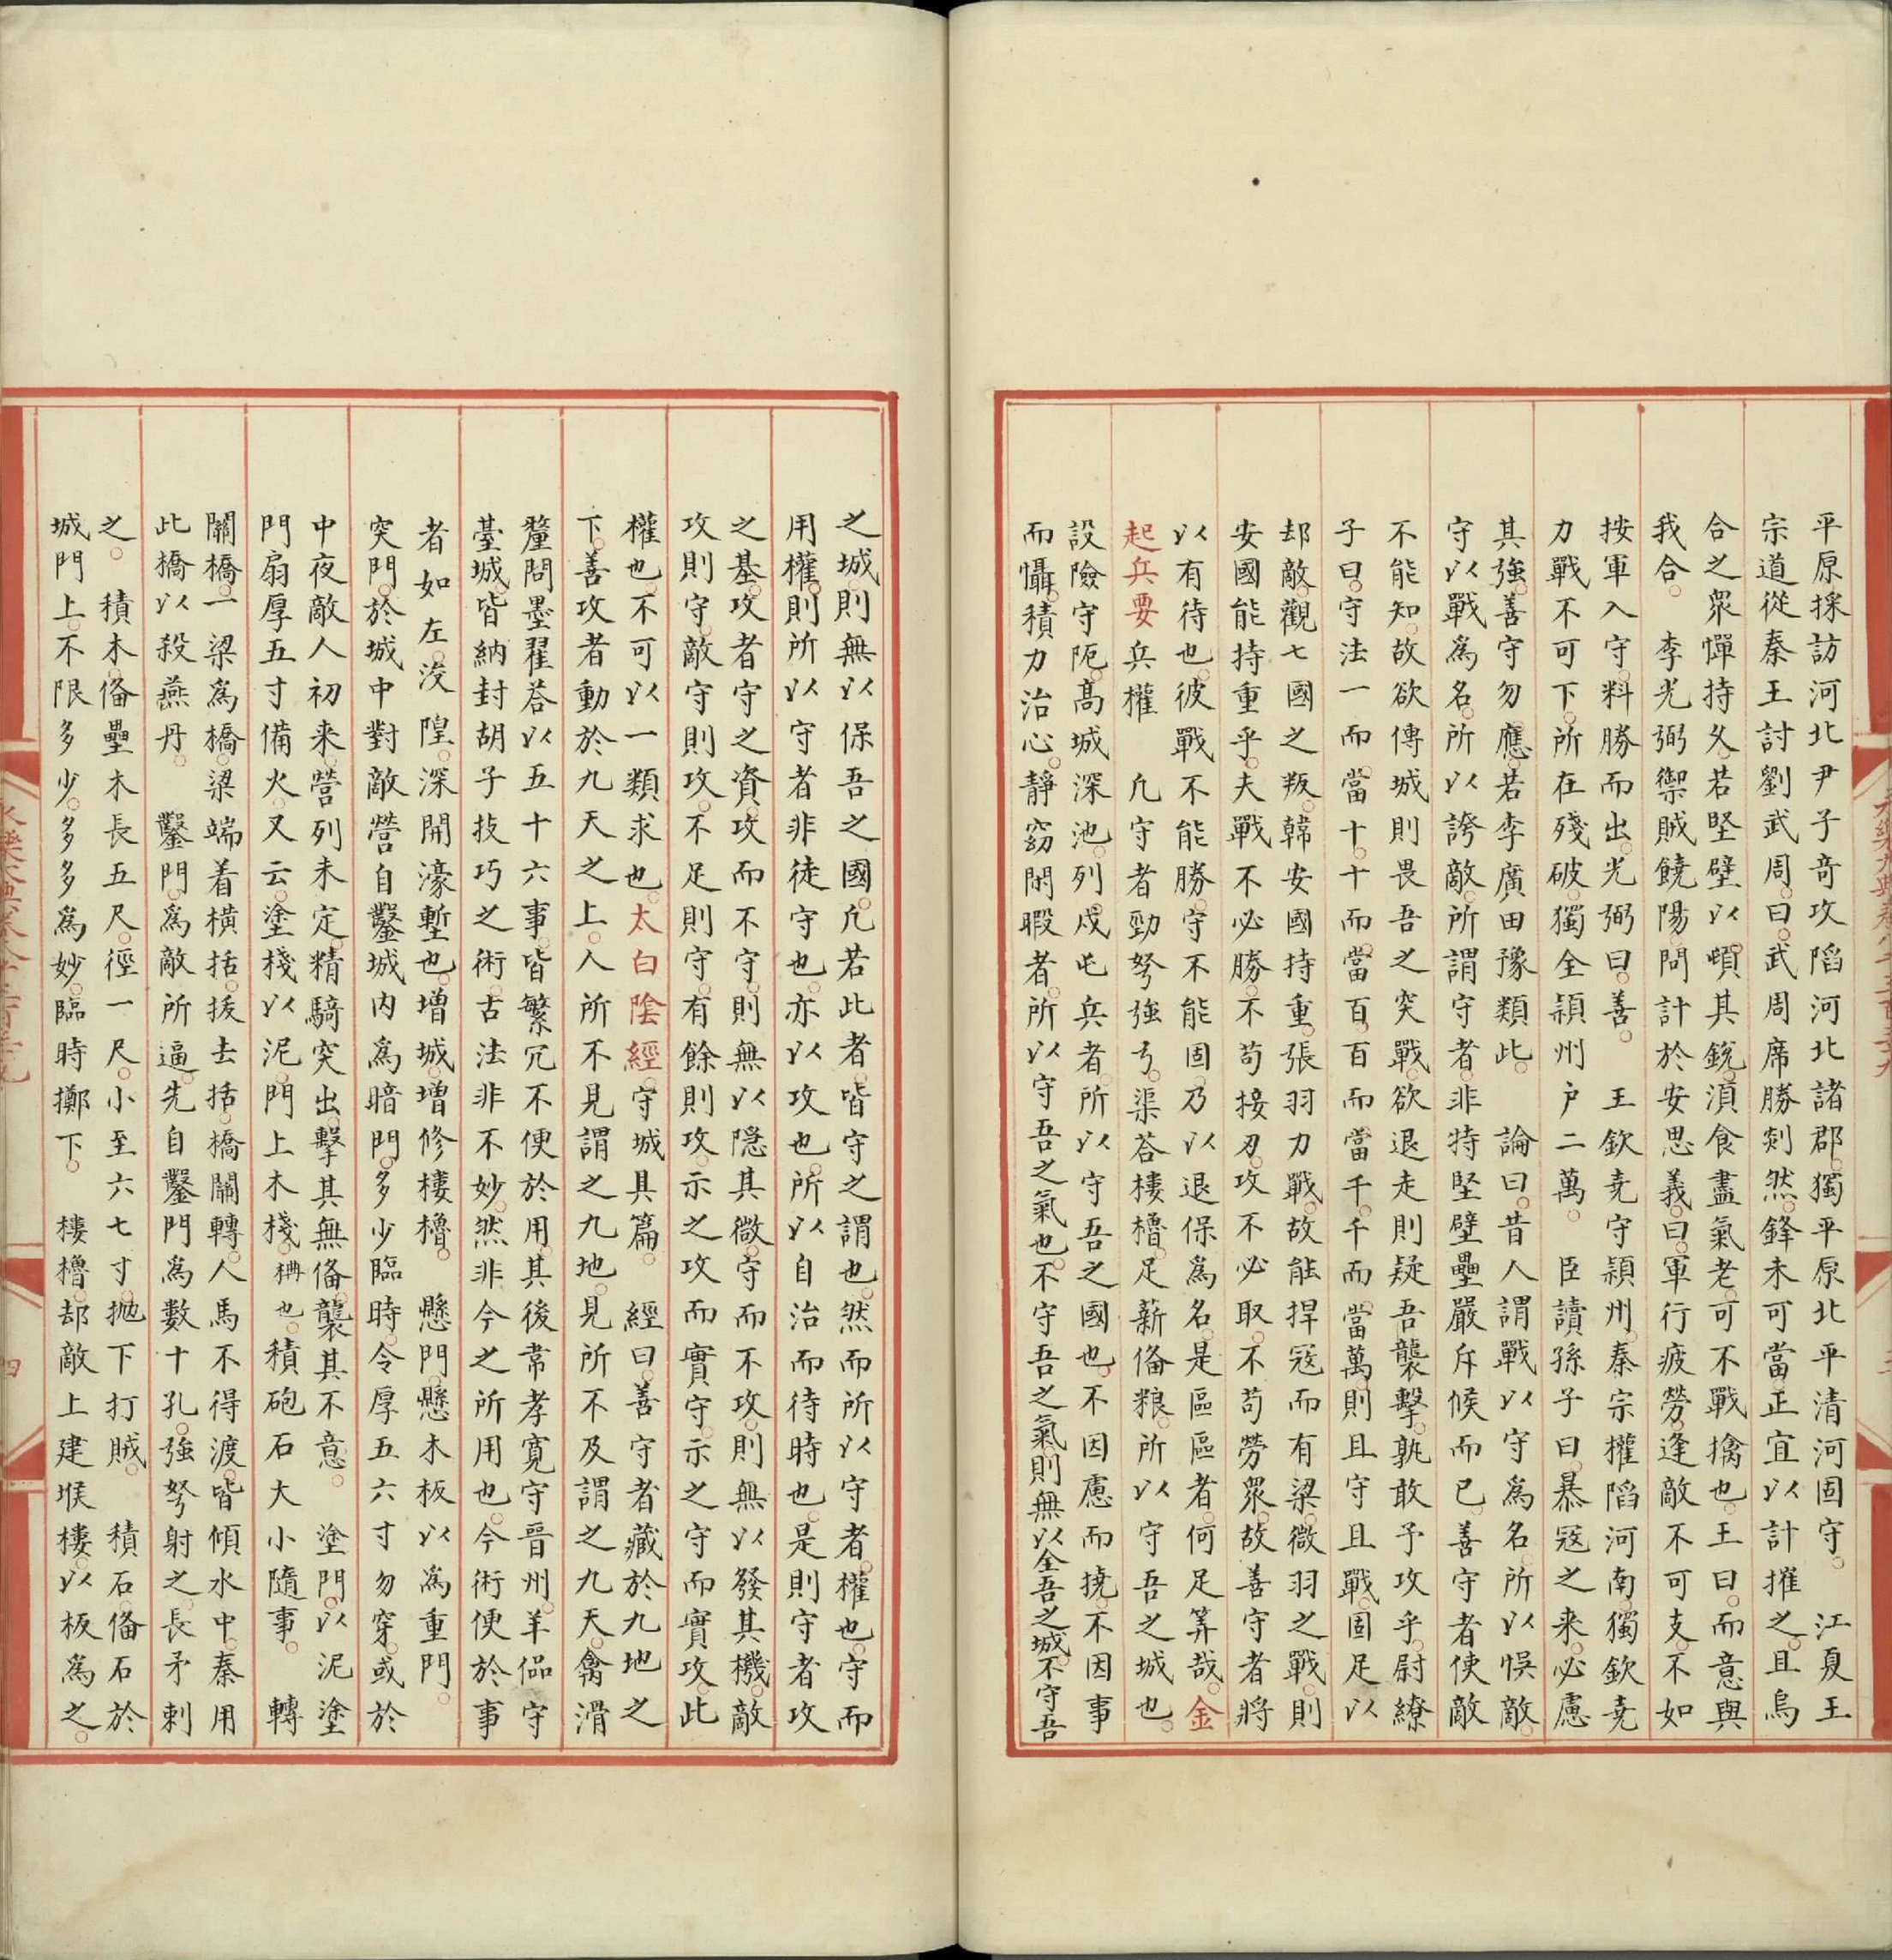 平原採訪河北尹子奇攻陷河北諸郡獨平原北平清河固守 江夏王
宗道從秦王討劉武周曰武周席勝剡然鋒未可當正宜以計摧之且烏
合之衆憚持久若堅壁以頓其銳湏食盡氣老可不戰擒也王曰而意與
我合 李光弼禦賊饒陽問計於安思義曰軍行疲勞逢敵不可支不如
按軍入守料勝而出光弼曰善 王欽堯守頴州秦宗權陷河南獨欽堯
力戰不可下所在殘破獨全頴州户二萬 臣讀孫子曰暴寇之来必慮
其強善守勿應若李廣田豫類此 論曰昔人謂戰以守為名所以悮敵
守以戰為名所以誇敵所謂守者非特堅壁壘嚴斥候而已善守者使敵
不能知故欲傅城則畏吾之突戰欲退走則疑吾襲擊孰敢予攻乎尉繚
子曰守法一而當十十而當百百而當千千而當萬則且守且戰固足以
却敵觀七國之叛韓安國持重張羽力戰故能捍寇而有梁微羽之戰則
安國能持重乎夫戰不必勝不苟接刃攻不必取不苟勞衆故善守者將
以有待也彼戰不能勝守不能固乃以退保為名是區區者何足筭哉金
起兵要兵權 凢守者勁弩強弓渠荅樓櫓足薪俻粮所以守吾之城也
設險守阨高城深池列戍屯兵者所以守吾之國也不因慮而撓不因事
而懾積力治心靜窈閒暇者所以守吾之氣也不守吾之氣則無以全吾之城不守吾
之城則無以保吾之國凢若此者皆守之謂也然而所以守者權也守而
用權則所以守者非徒守也亦以攻也所以自治而待時也是則守者攻
之基攻者守之資攻而不守則無以隠其微守而不攻則無以發其機敵
攻則守敵守則攻不足則守有餘則攻示之攻而實守示之守而實攻此
權也不可以一類求也太白陰經守城具篇 經曰善守者藏於九地之
下善攻者動於九天之上人所不見謂之九地見所不及謂之九天禽滑
釐問墨翟荅以五十六事皆繁冗不便於用其後常孝寬守晋州羊侃守
臺城皆納封胡子技巧之術古法非不妙然非今之所用也今術便於事
者如左 浚隍深開濠塹也增城增修樓櫓 懸門懸木板以為重門
突門於城中對敵營自鑿城内為暗門多少臨時令厚五六寸勿穿或於
中夜敵人初来營列未定精騎突出擊其無俻襲其不意 塗門以泥塗
門扇厚五寸備火又云塗棧以泥門上木棧棚也積砲石大小隨事 轉
關橋一梁為橋梁端着橫括拔去括橋關轉人馬不得渡皆傾水中秦用
此橋以殺燕丹 鑿門為敵所逼先自鑿門為數十孔強弩射之長矛刺
之 積木俻壘木長五尺徑一尺小至六七寸抛下打賊 積石俻石於
城門上不限多少多多為妙臨時擲下 樓櫓却敵上建堠樓以板為之